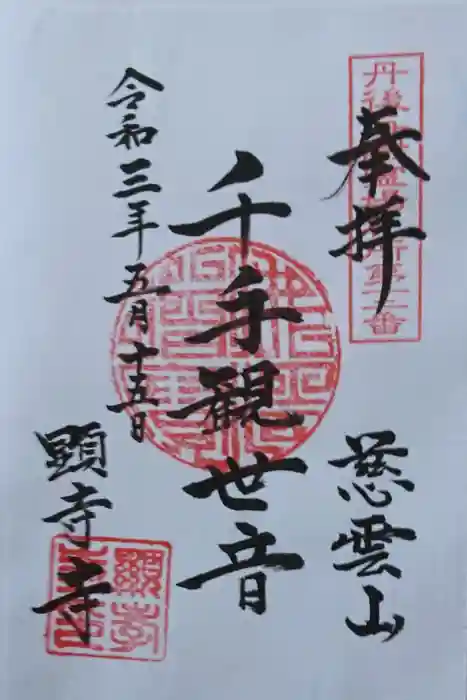 丹後 霊場 所第 番
奉拝
慈雲山
千手観世音
令和三年五月十五日
顕孝寺
顯孝